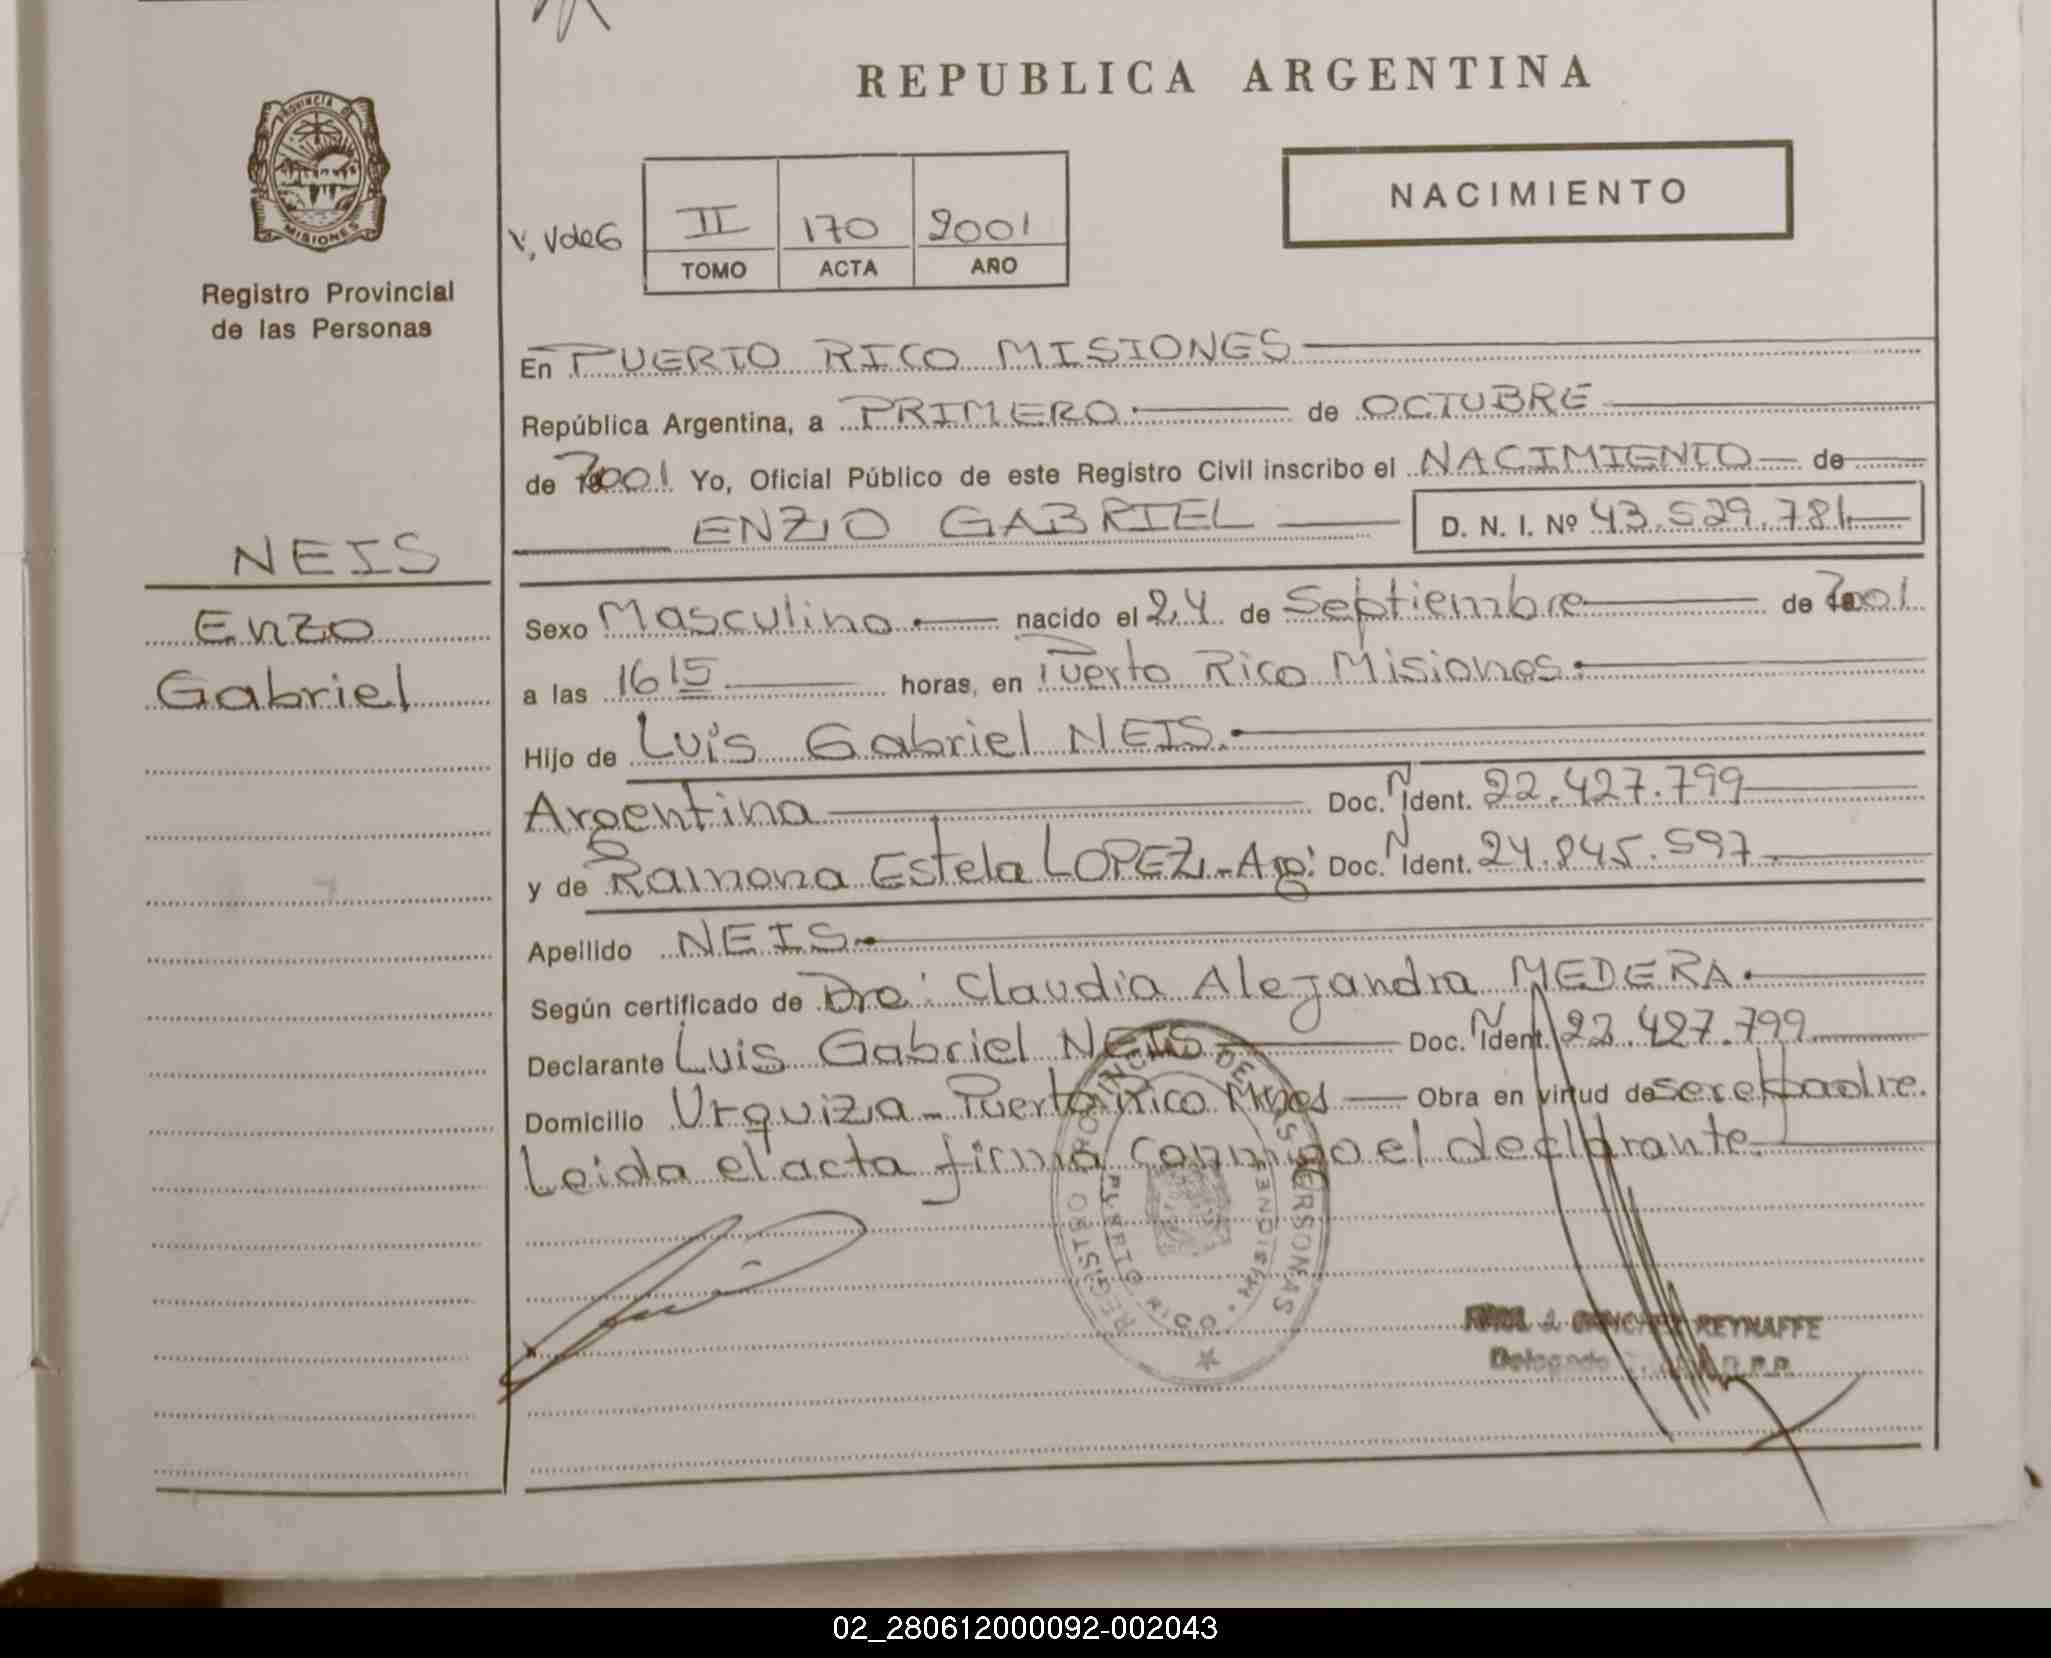 REPUBLICA ARGENTINA
PROVINCIA DE
MISIONES
NACIMIENTO
II 170 2001
V, VdeG
TOMO ACTA AÑO
Registro Provincial
de las Personas
En PUERTO RICO MISIONES
República Argentina, a PRIMERO de OCTUBRE
de 2001 Yo, Oficial Público de este Registro Civil inscribo el NACIMIENTO de
ENZO GABRIEL D. N. I. Nº 43.529.781
NEIS
Enzo
Gabriel
Sexo Masculino nacido el 24 de Septiembre de 2001
a las 16 15 horas, en Puerto Rico Misiones
Hijo de Luis Gabriel NEIS.
Argentina Doc. N Ident. 22.427.799
y de Ramona Estela LOPEZ - Arg. Doc. N Ident. 24.845.597
Apellido NEIS
Según certificado de Dra. Claudia Alejandra MEDERA
Declarante Luis Gabriel NEIS Doc. N Ident. 22.427.799
Domicilio Urquiza - Puerto Rico Mnes Obra en virtud de ser el padre.
Leida el acta firma conmigo el declarante.
REGISTRO PROVINCIAL DE LAS PERSONAS
PUERTO RICO MISIONES
SANCHEZ REYNAFFE
Delegado R.P.P.
02_280612000092-002043